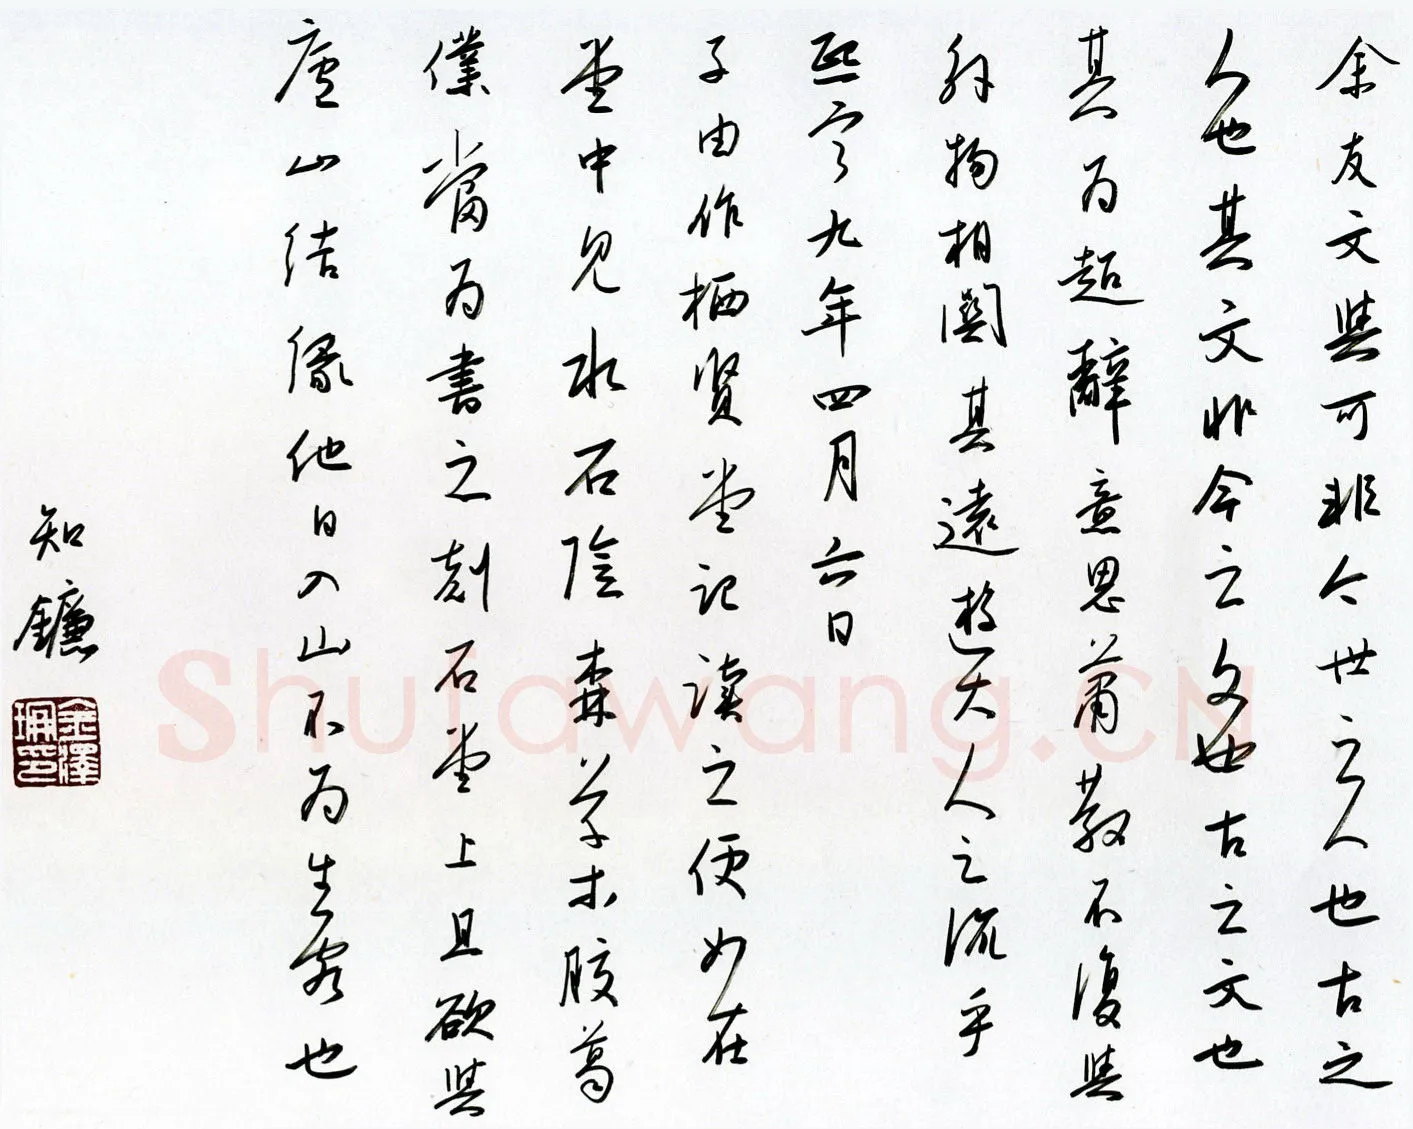 余友文與可非今世之人也古之
人也其文非今之文也古之文也
其为超辭意思萧散不復與
外物相關其遠遊大人之流乎
熙宁九年四月六日
子由作栖贤堂记读之便如在
堂中见水石陰森草木胶葛
僕當为書之刻石堂上且欲與
廬山结缘他日入山不为生客也
知鐮
金澤珊印
Shufawang.CN